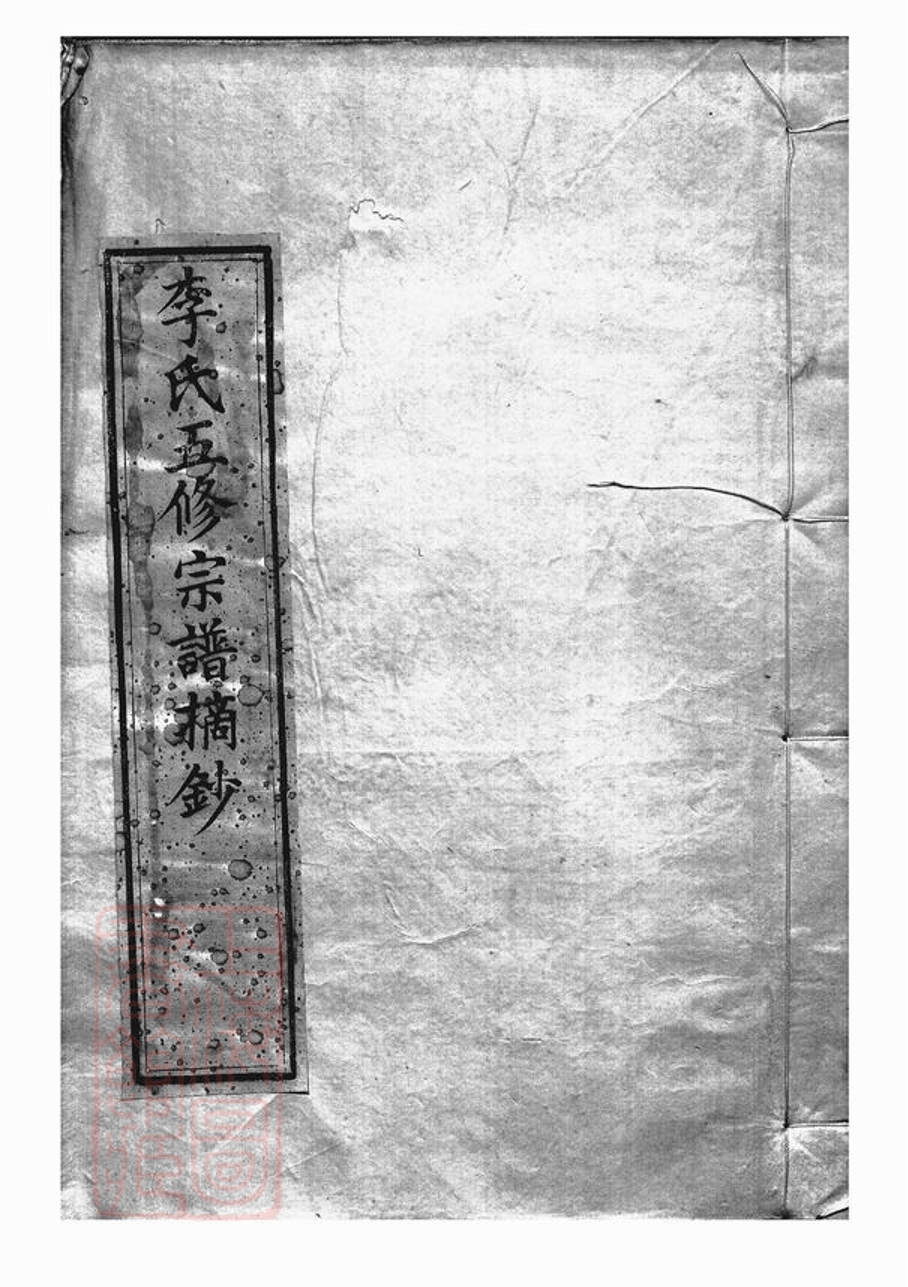 李氏五修宗譜摘鈔